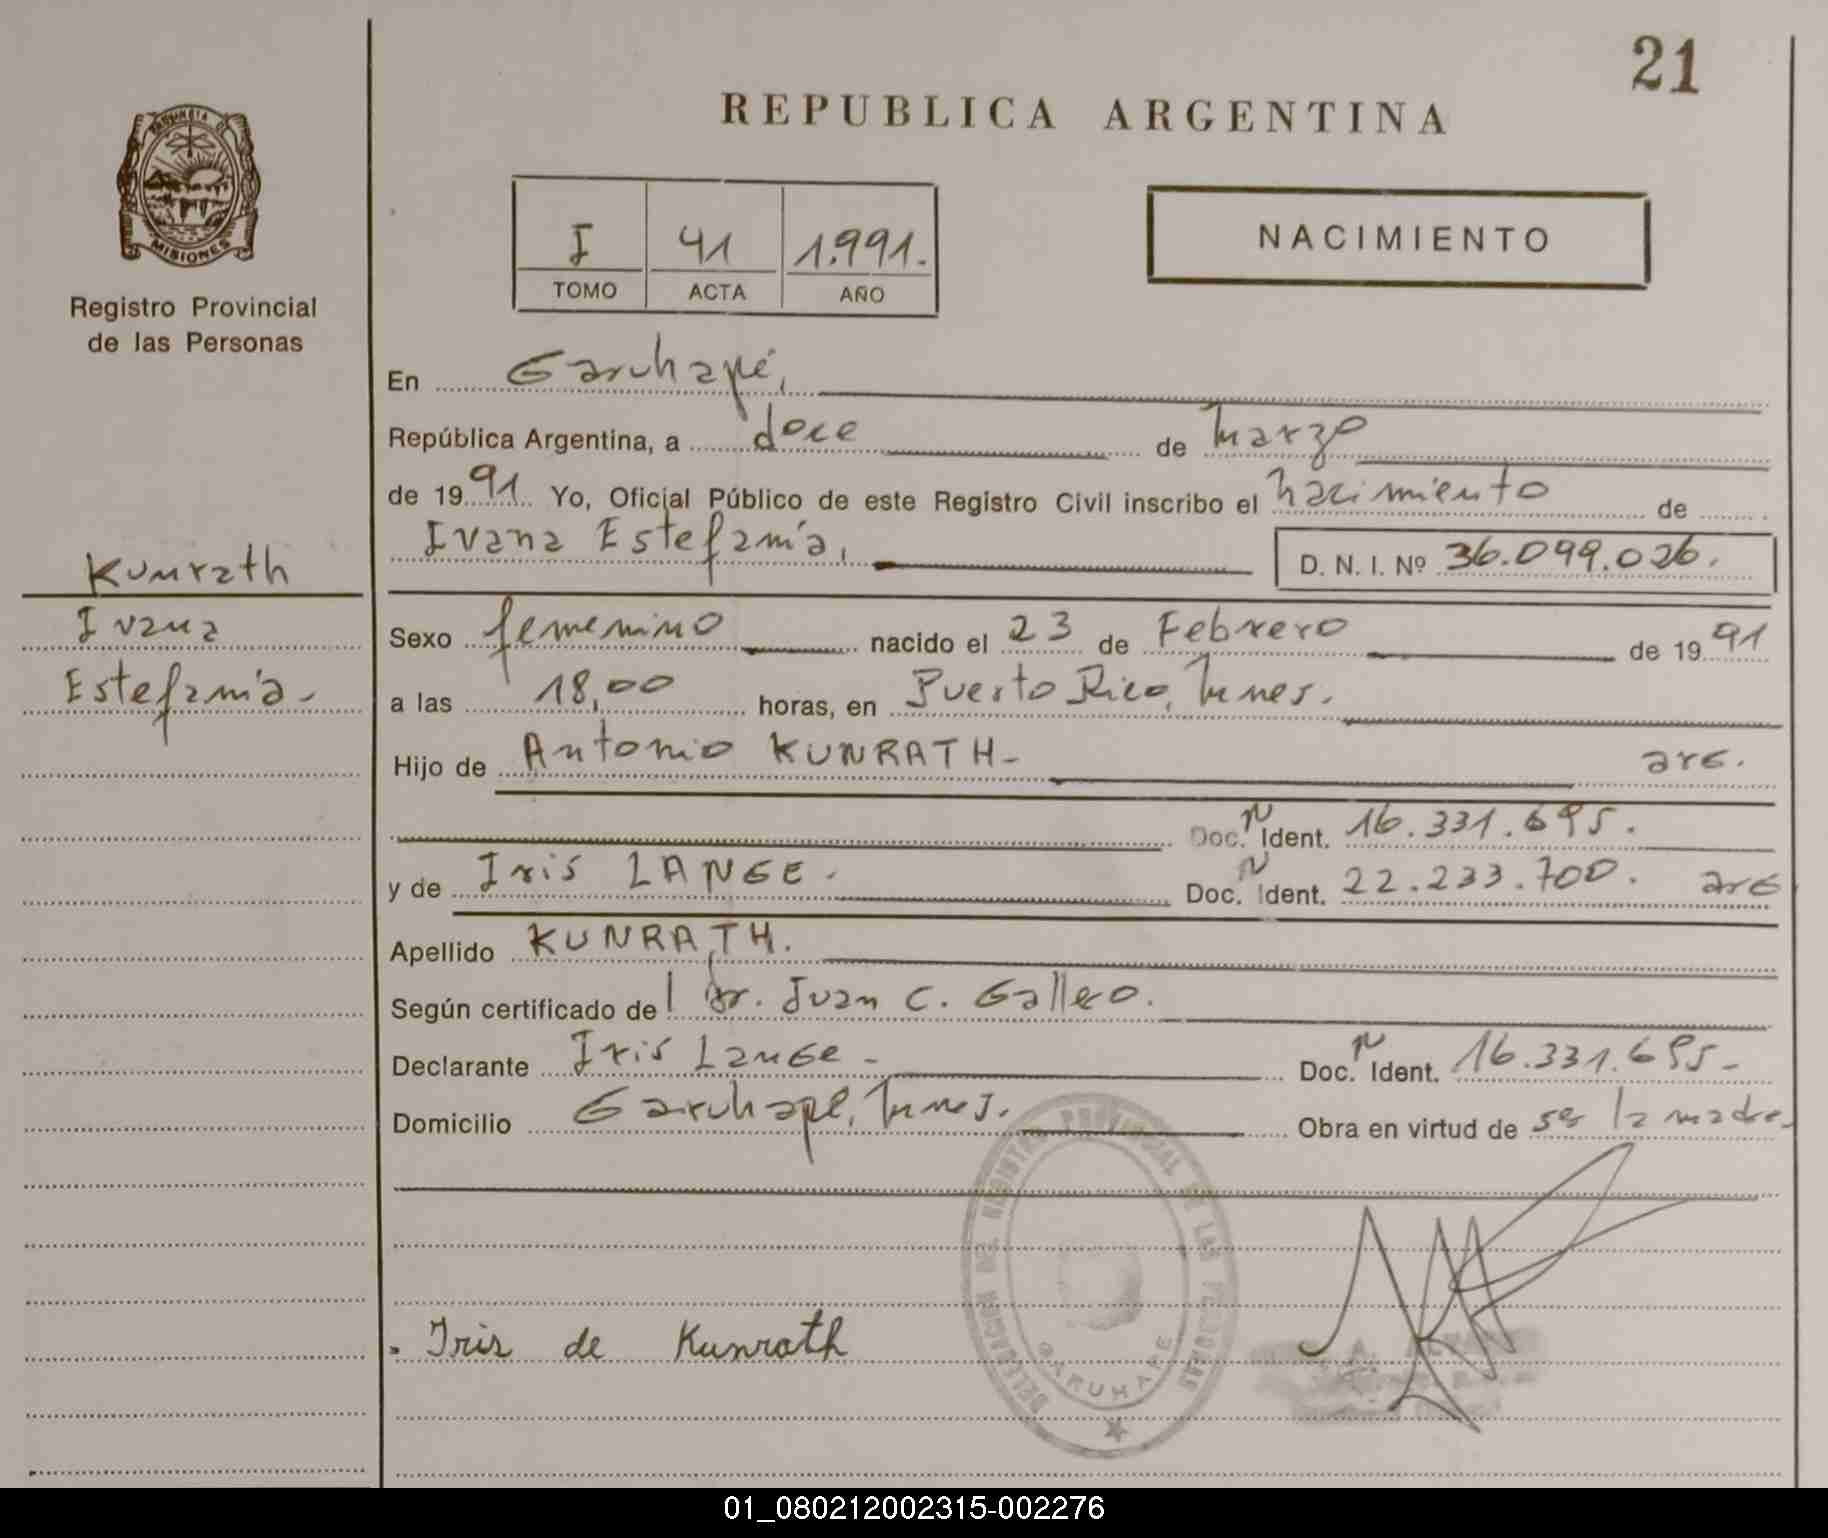 21
REPUBLICA ARGENTINA
PROVINCIA DE
MISIONES
Registro Provincial
de las Personas
I 41 1.991.
TOMO ACTA AÑO
NACIMIENTO
En Garuhapé,
República Argentina, a doce de Marzo
de 1991 Yo, Oficial Público de este Registro Civil inscribo el nacimiento de
Ivana Estefanía, D. N. I. Nº 36.099.026.
Kunrath
Ivana
Estefanía.
Sexo femenino nacido el 23 de Febrero de 1991
a las 18,00 horas, en Puerto Rico, Mnes.
Hijo de Antonio KUNRATH- arg.
Doc. N Ident. 16.331.695.
y de Iris LANGE. Doc. N Ident. 22.233.700. arg
Apellido KUNRATH.
Según certificado del Dr. Juan C. Gallero.
Declarante Iris Lange - Doc. N Ident. 16.331.695-
Domicilio Garuhapé, Mnes. Obra en virtud de ser la madre,
DELEGACION DEL REGISTRO PROVINCIAL DE LAS PERSONAS
GARUHAPE
Iris de Kunrath
01_080212002315-002276